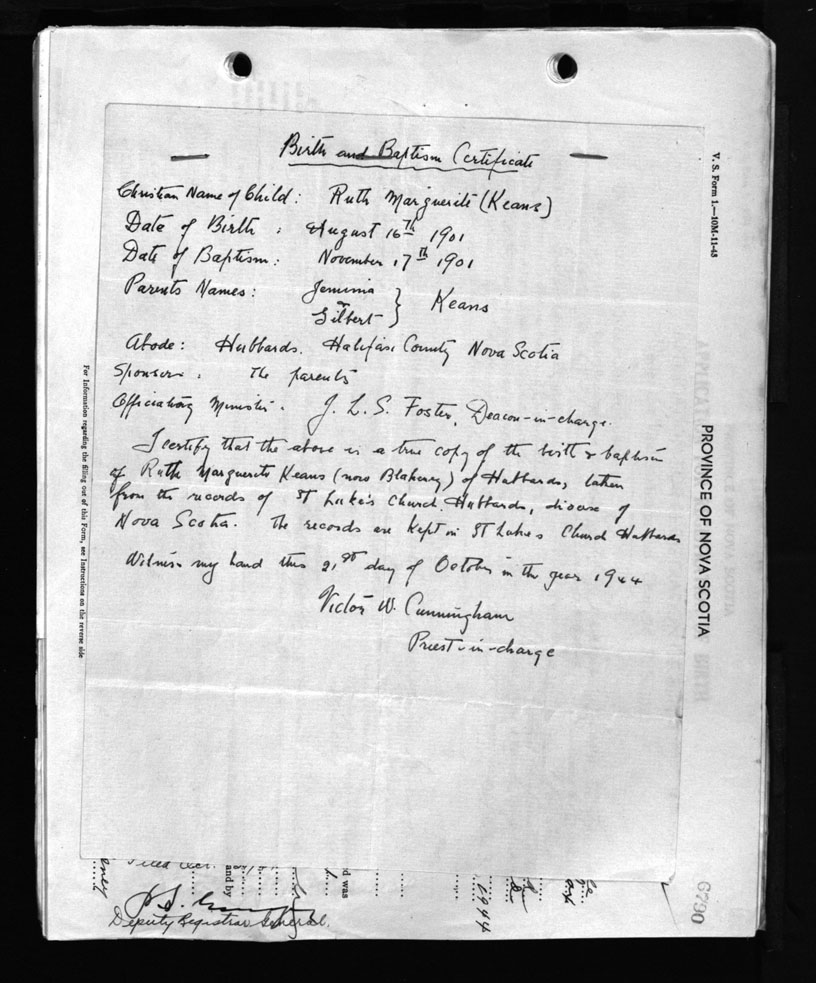 Birth and Baptism Certificate
Christian Name of Child: Ruth Marguerite (Keans)
Date of Birth : August 16th 1901
Date of Baptism: November 17th 1901
Parents Names: Jemima
Gilbert } Keans
Abode: Hubbards. Halifax County Nova Scotia
Sponsors: The parents
Officiating Minister: J. L. S. Foster, Deacon-in-charge.
I certify that the above is a true copy of the birth & baptism
of Ruth Marguerite Keans (now Blakeney) of Hubbards, taken
from the records of St Luke's Church, Hubbards, diocese of
Nova Scotia. The records are kept in St Luke's Church Hubbards
Witness my hand this 21st day of October in the year 1944
Victor W. Cunningham
Priest-in-charge
V. S. Form 1.—10M-11-43
PROVINCE OF NOVA SCOTIA
For Information regarding the filling out of this Form, see Instructions on the reverse side
6790
Filed Oct.
and by
d was
1944
Deputy Registrar General.